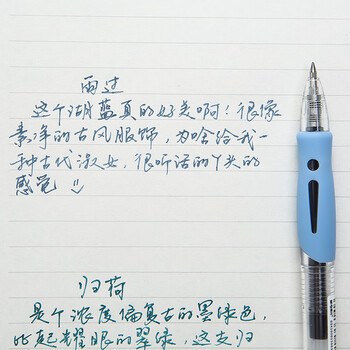 雨过
这个湖蓝真的好美啊！很像
素净的古风服饰，为啥给我一
种古代淑女，很听话的丫头的
感觉
归荷
是个浓度偏复古的墨绿色，
比起耀眼的翠绿，这支归